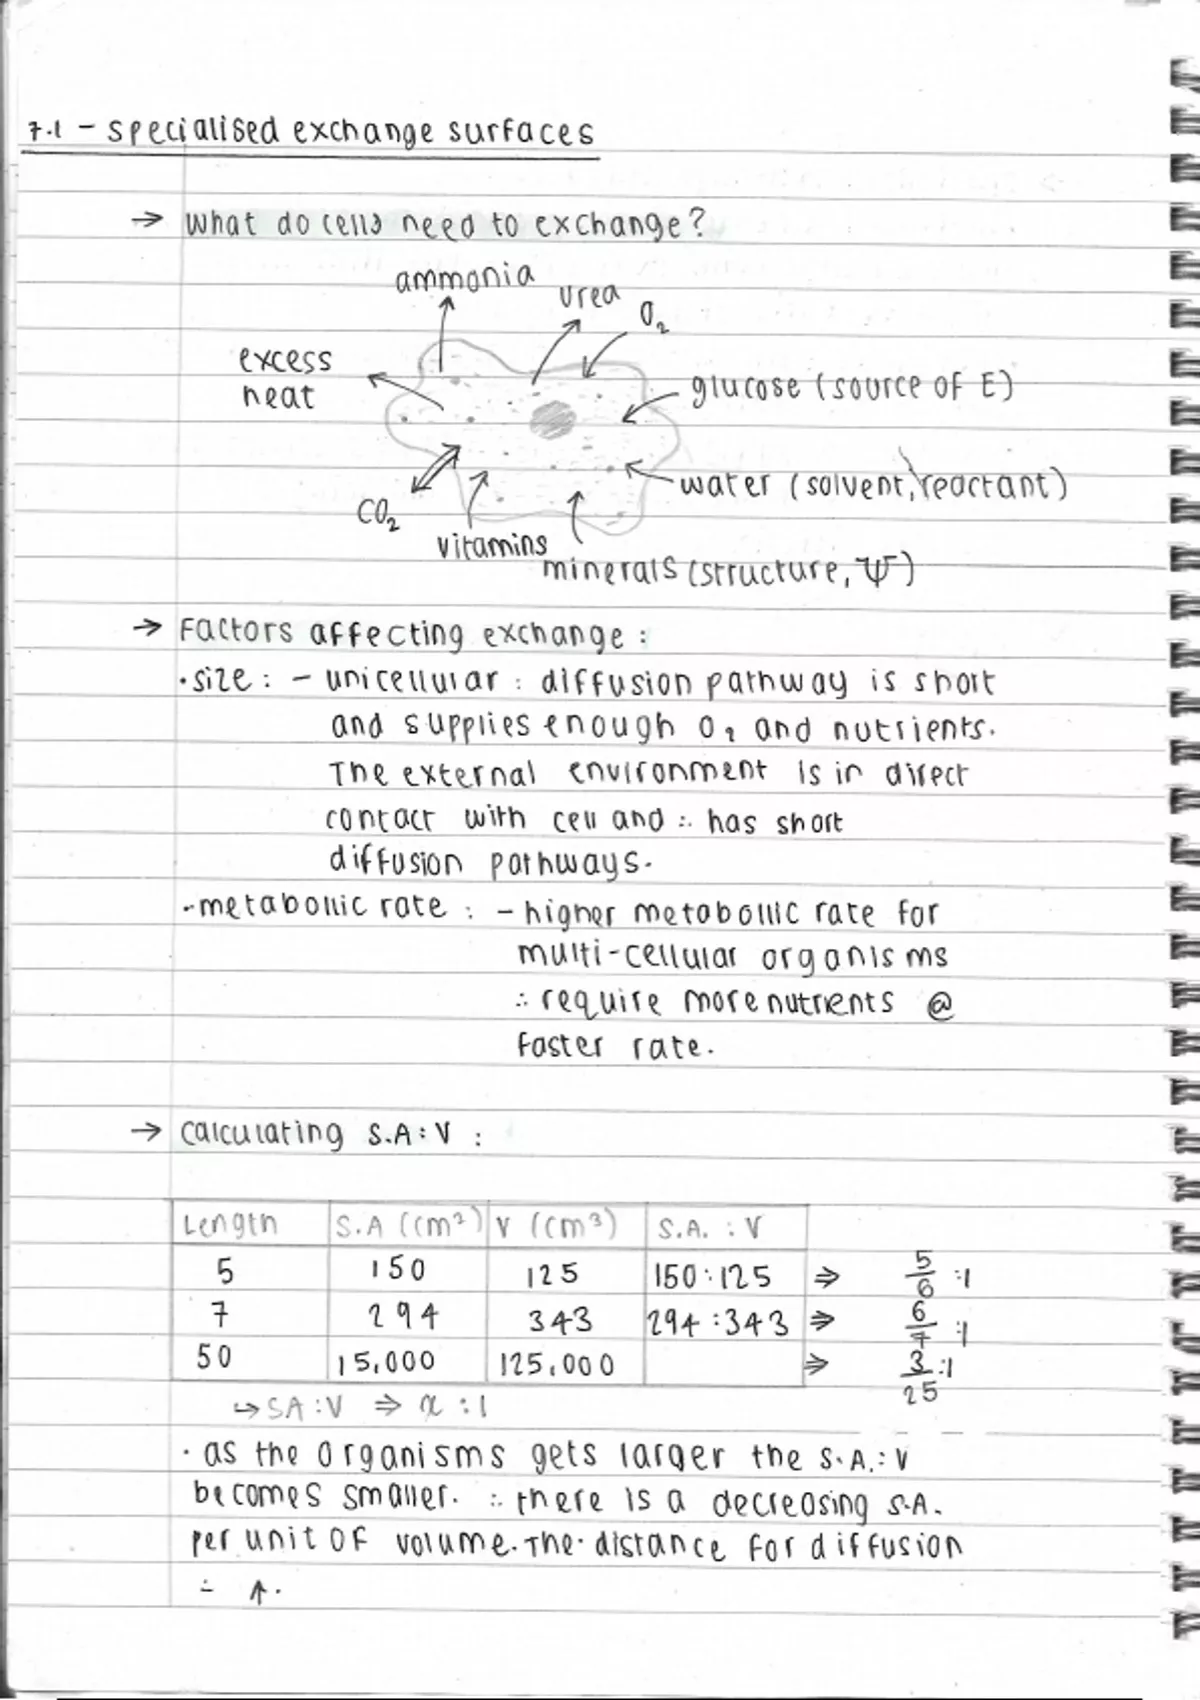 7.1 - specialised exchange surfaces
→ What do cells need to exchange?
ammonia
urea
O₂
excess
heat
glucose (source of E)
water (solvent, reactant)
CO₂
vitamins
minerals (structure, Ψ)
→ Factors affecting exchange:
• size: - unicellular: diffusion pathway is short
and supplies enough O₂ and nutrients.
The external environment is in direct
contact with cell and ∴ has short
diffusion pathways.
• metabollic rate: - higher metabollic rate for
multi-cellular organisms
∴ require more nutrients @
faster rate.
→ calculating S.A:V:
Length S.A (cm²) V (cm³) S.A. : V
5 150 125 150:125 ⇒ 5/6 :1
7 294 343 294:343 ⇒ 6/7 :1
50 15,000 125,000 ⇒ 3/25 :1
↳ SA:V ⇒ x:1
• as the organisms gets larger the S.A.:V
becomes smaller. ∴ there is a decreasing S.A.
per unit of volume. The distance for diffusion
∴ ↑.